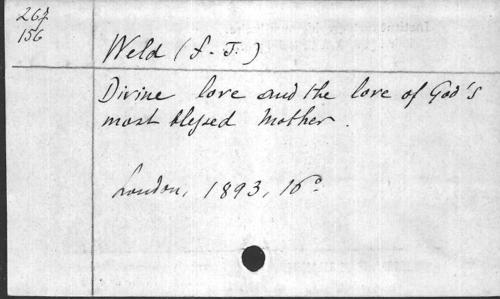 267
156
Weld (F. J.)
Divine love and the love of God's
most blessed Mother.
London, 1893, 16°